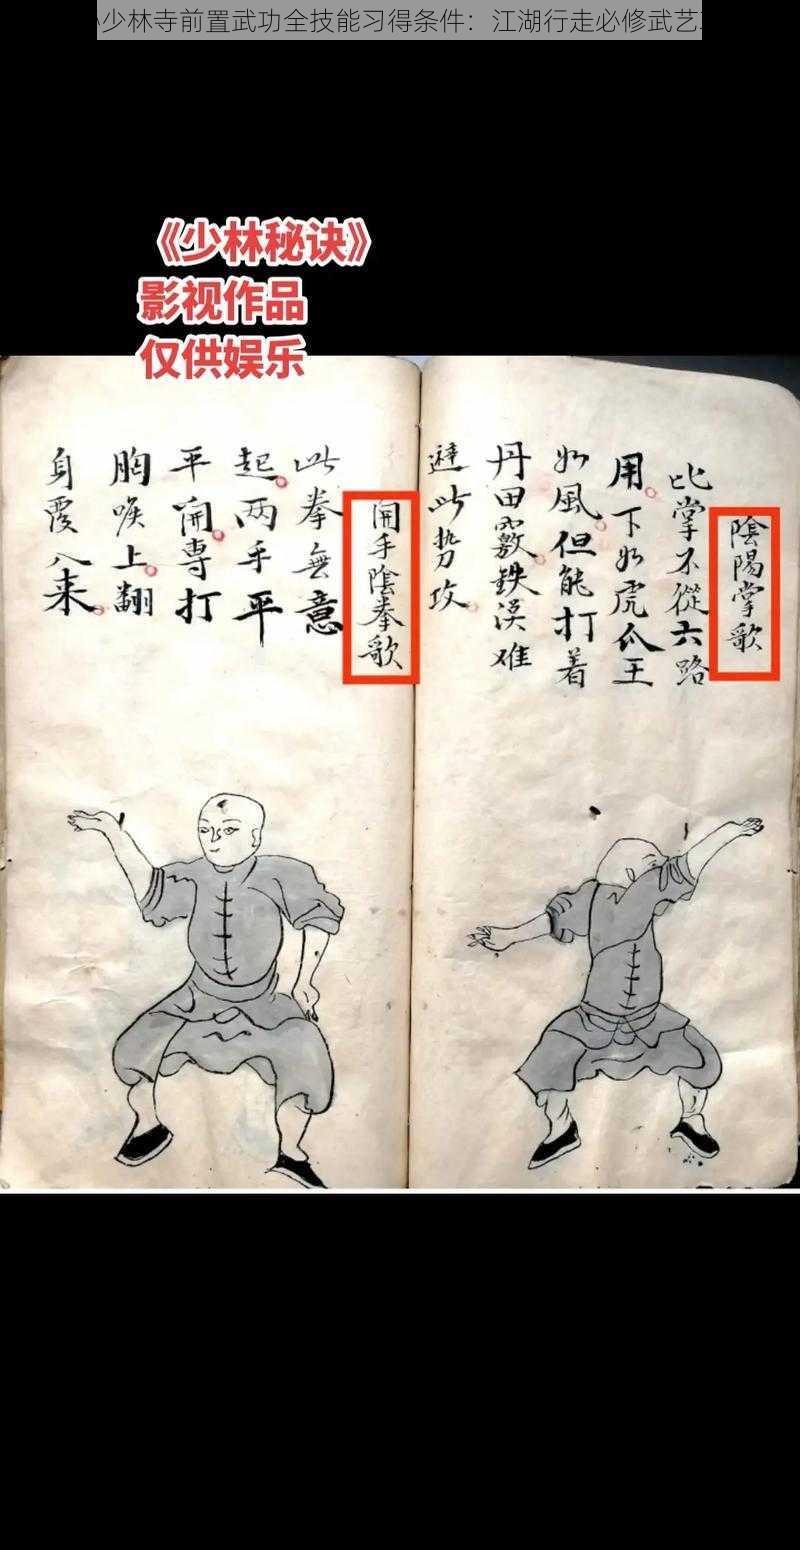 少林寺前置武功全技能习得条件：江湖行走必修武艺
《少林秘诀》
影视作品
仅供娱乐
陰陽掌歌
比掌不從六路
用下如虎爪王
如風但能打着
丹田竅鉄漢难
避此势攻
開手陰拳歌
此拳無意
起两手平
平開専打
胸喉上翻
身覆入来